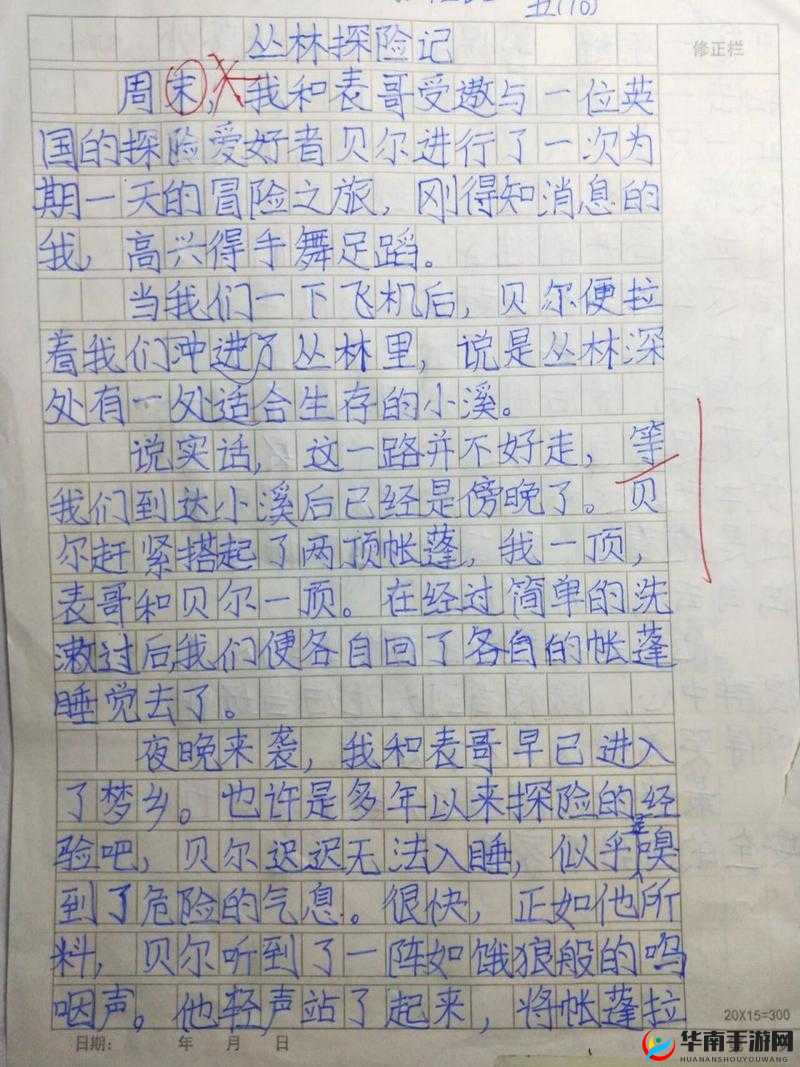 五(10)
丛林探险记
修正栏
周末,我和表哥受邀与一位英
国的探险爱好者贝尔进行了一次为
期一天的冒险之旅,刚得知消息的
我,高兴得手舞足蹈。
当我们一下飞机后,贝尔便拉
着我们冲进了丛林里,说是丛林深
处有一处适合生存的小溪。
说实话,这一路并不好走,等
我们到达小溪后已经是傍晚了。贝
尔赶紧搭起了两顶帐蓬,我一顶,
表哥和贝尔一顶。在经过简单的洗
漱过后,我们便各自回了各自的帐蓬
睡觉去了。
夜晚来袭,我和表哥早已进入
了梦乡。也许是多年以来探险的经
验吧,贝尔迟迟无法入睡,似乎是嗅
到了危险的气息。很快,正如他所
料,贝尔听到了一阵如饿狼般的呜
咽声。他轻声站了起来,将帐蓬拉
20X15=300
日期: 年 月 日
华南手游网
HUANANSHOUYOUWANG